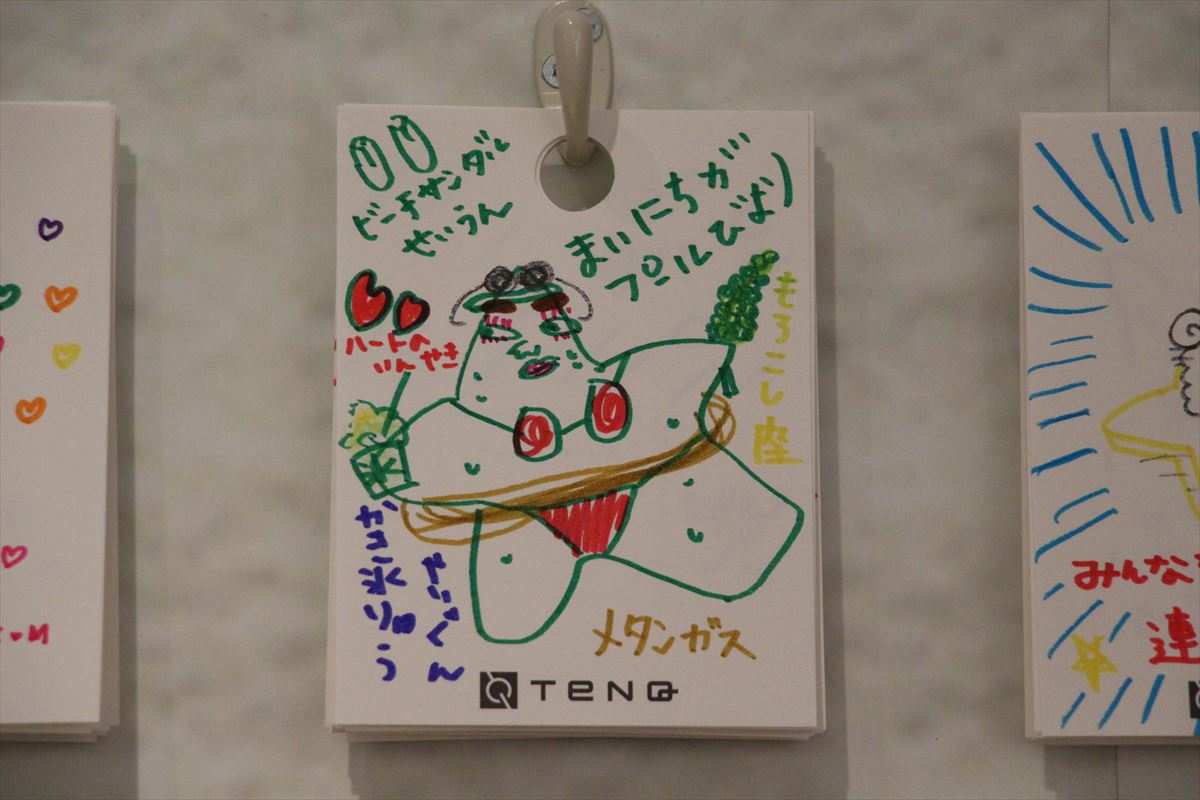 ビーチサンダル
せいうん
まいにちが
プールびより
ハートの
いんせき
もろこし座
氷
かき氷りゅう
せいぐん
メタンガス
TeNQ
みんな
連